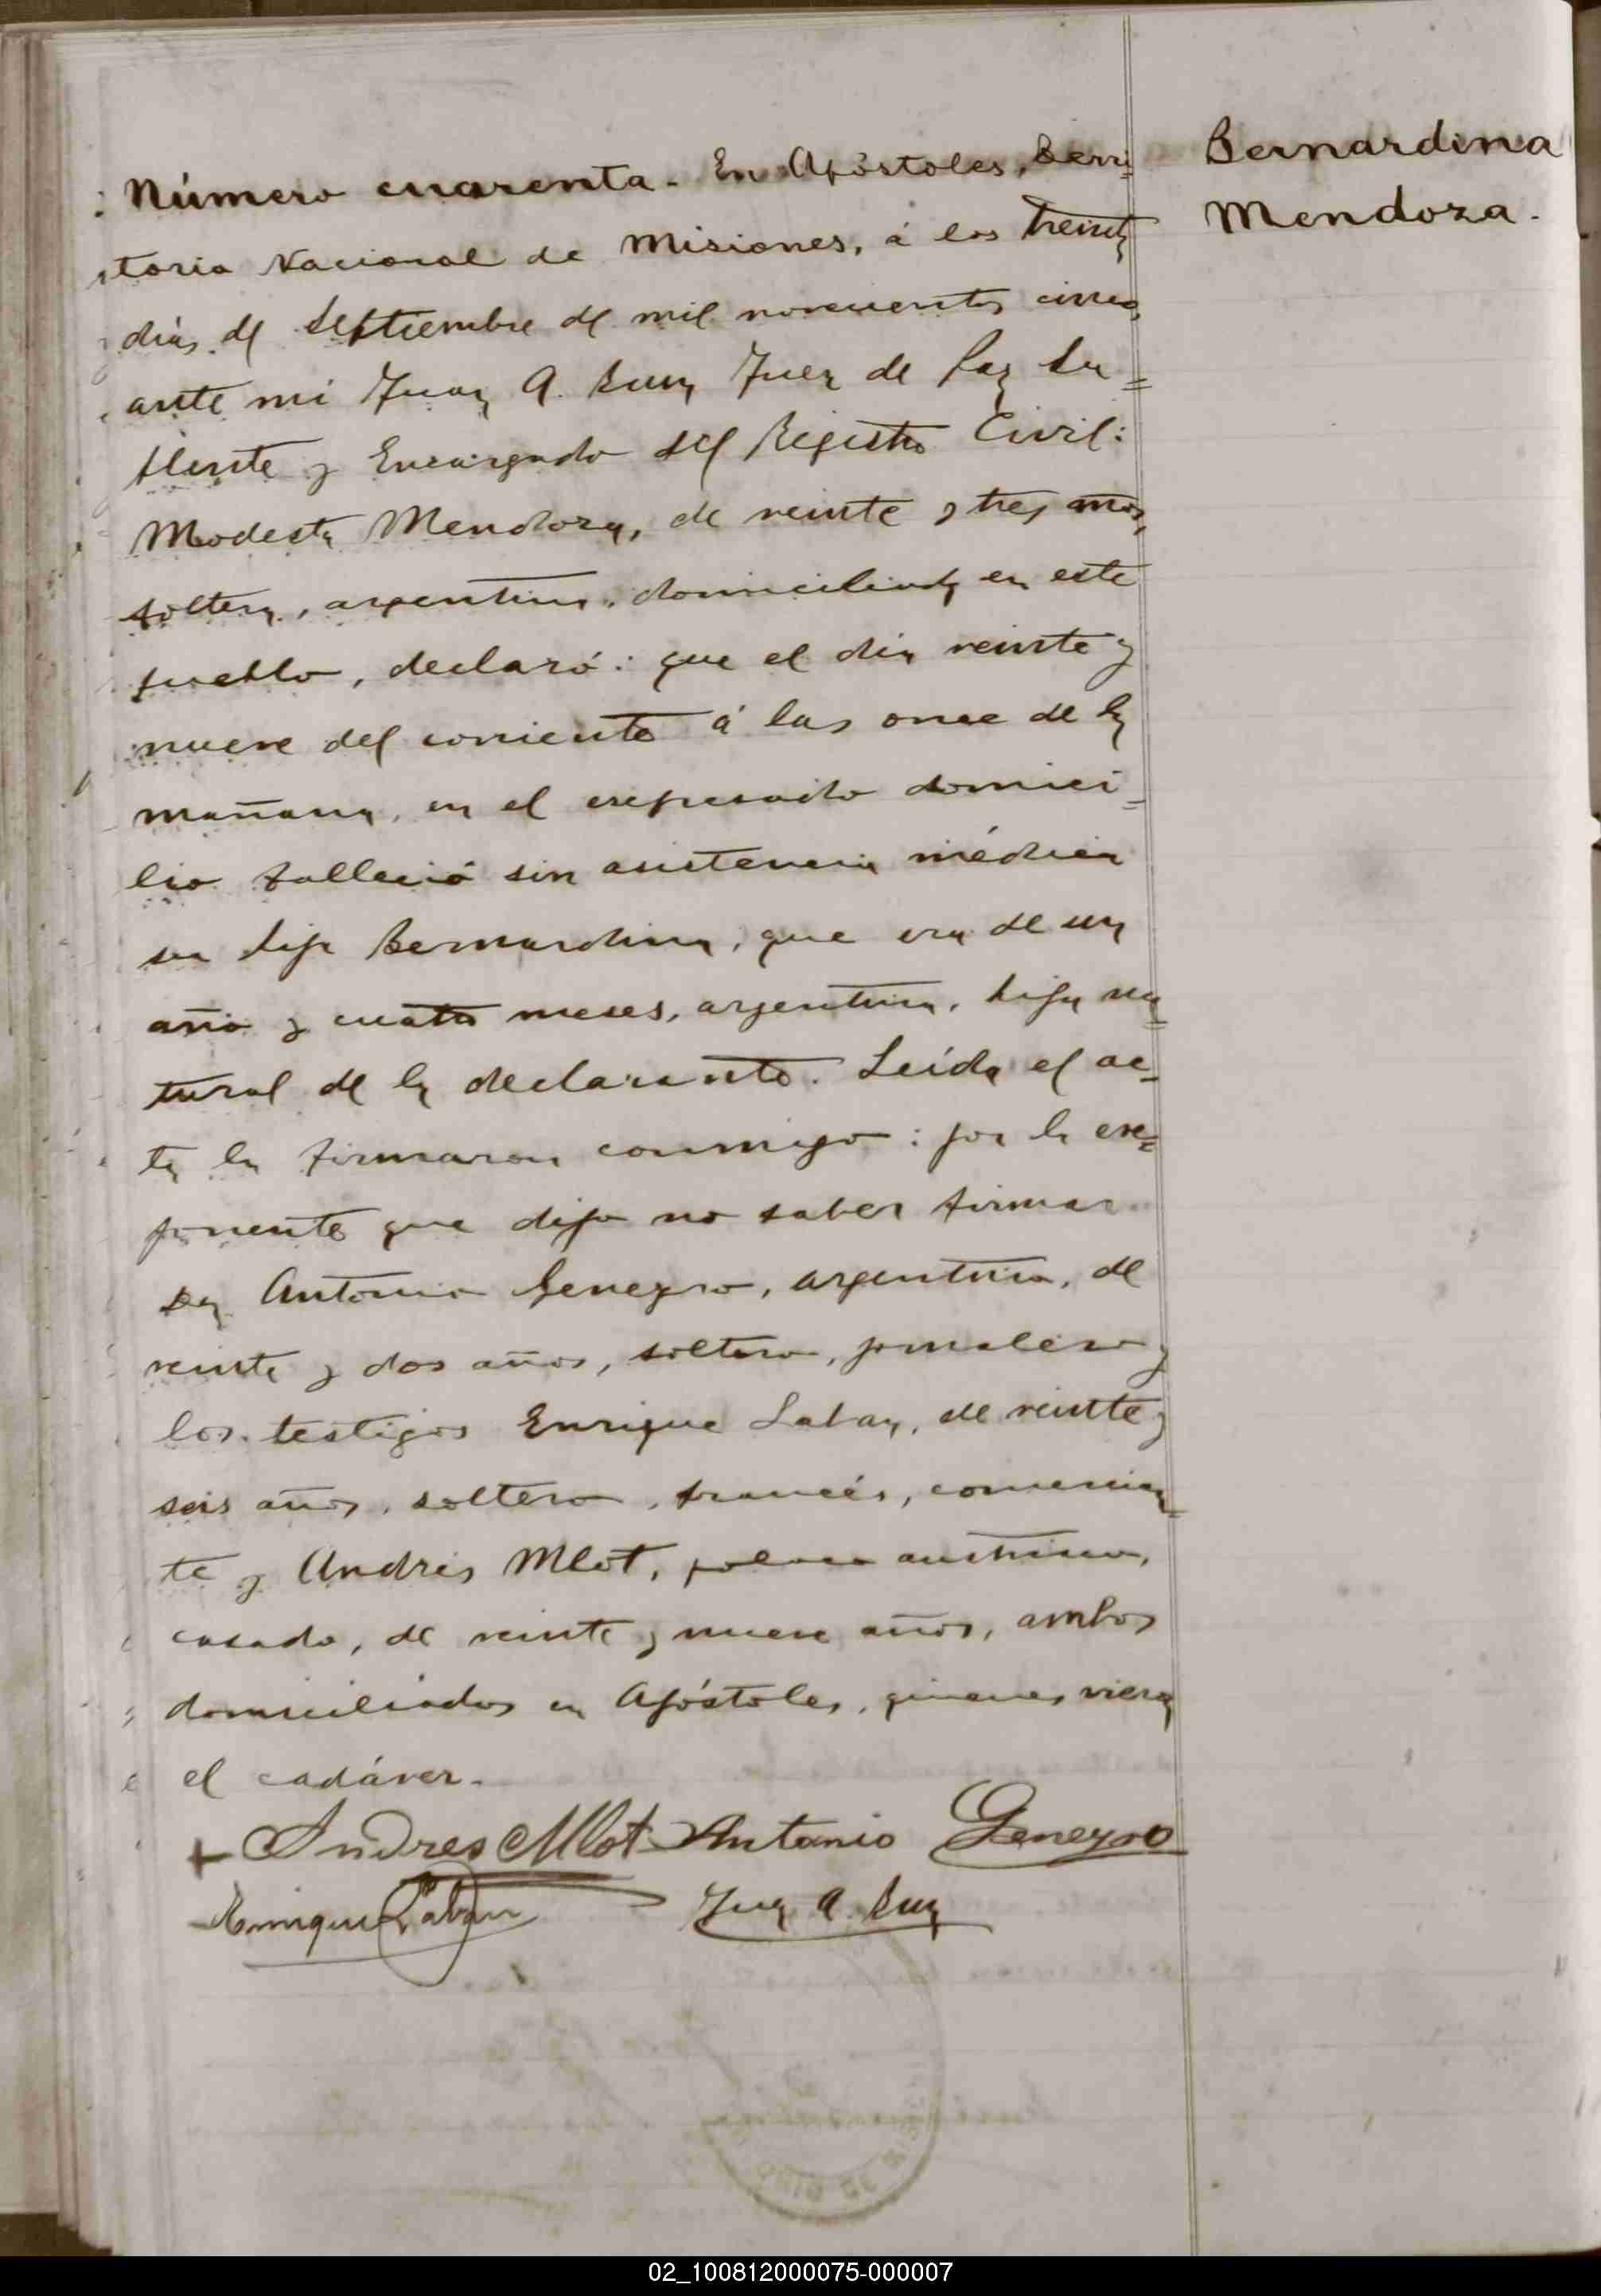 Bernardina
Mendoza.
Número cuarenta. En Apóstoles, Terri=
torio Nacional de Misiones, á los treinta
dias del Septiembre de mil novecientos cinco,
ante mi Juan A. Juez de Paz Su=
plente y Encargado del Registro Civil:
Modesta Mendoza, de veinte y tres años,
soltera, argentina, domiciliada en este
pueblo, declaró: que el dia veinte y
nueve del corriente á las once de la
mañana, en el expresado domici=
lio falleció sin asistencia médica
su hija Bernardina, que era de un
año y cuatro meses, argentina, hija na=
tural de la declarante. Leida el ac=
ta la firmaron conmigo: por la ex=
ponente que dijo no saber firmar
Don Antonio Geneyro, argentino, de
veinte y dos años, soltero, jornalero y
los testigos Enrique Laban, de veinte y
seis años, soltero, francés, comercian=
te y Andrés Mlot, polaco austriaco,
casado, de veinte y nueve años, ambos
domiciliados en Apóstoles, quienes vieron
el cadáver.
Andres Mlot Antonio Geneyro
Enrique Laban Juan A.
02_100812000075-000007